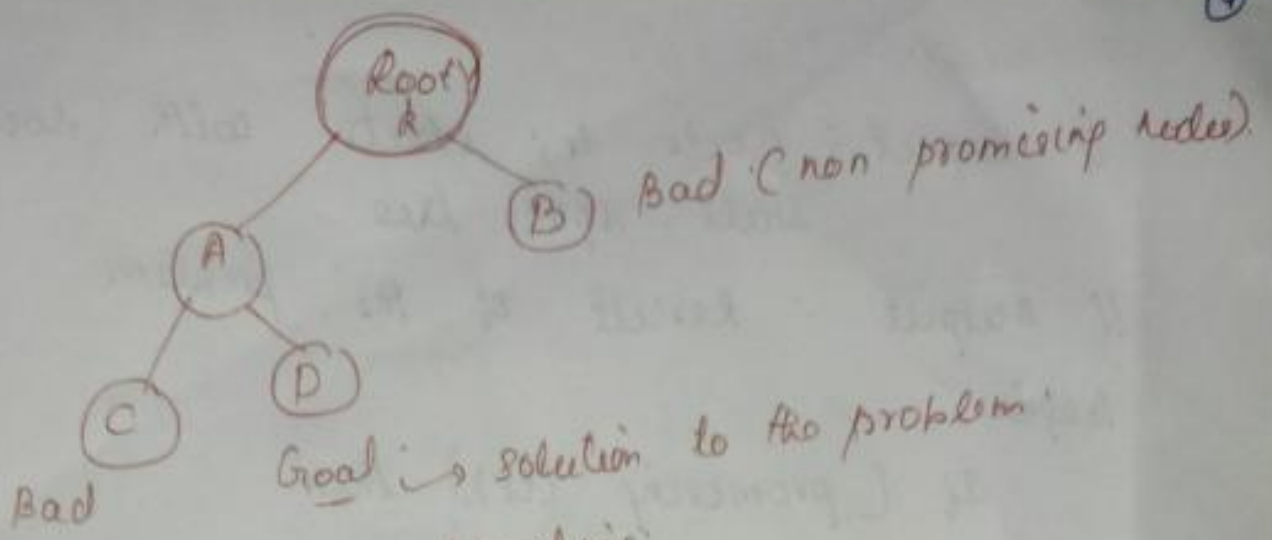 Root
R
A
B Bad (non promising nodes).
C
D
Goal → solution to the problem
Bad